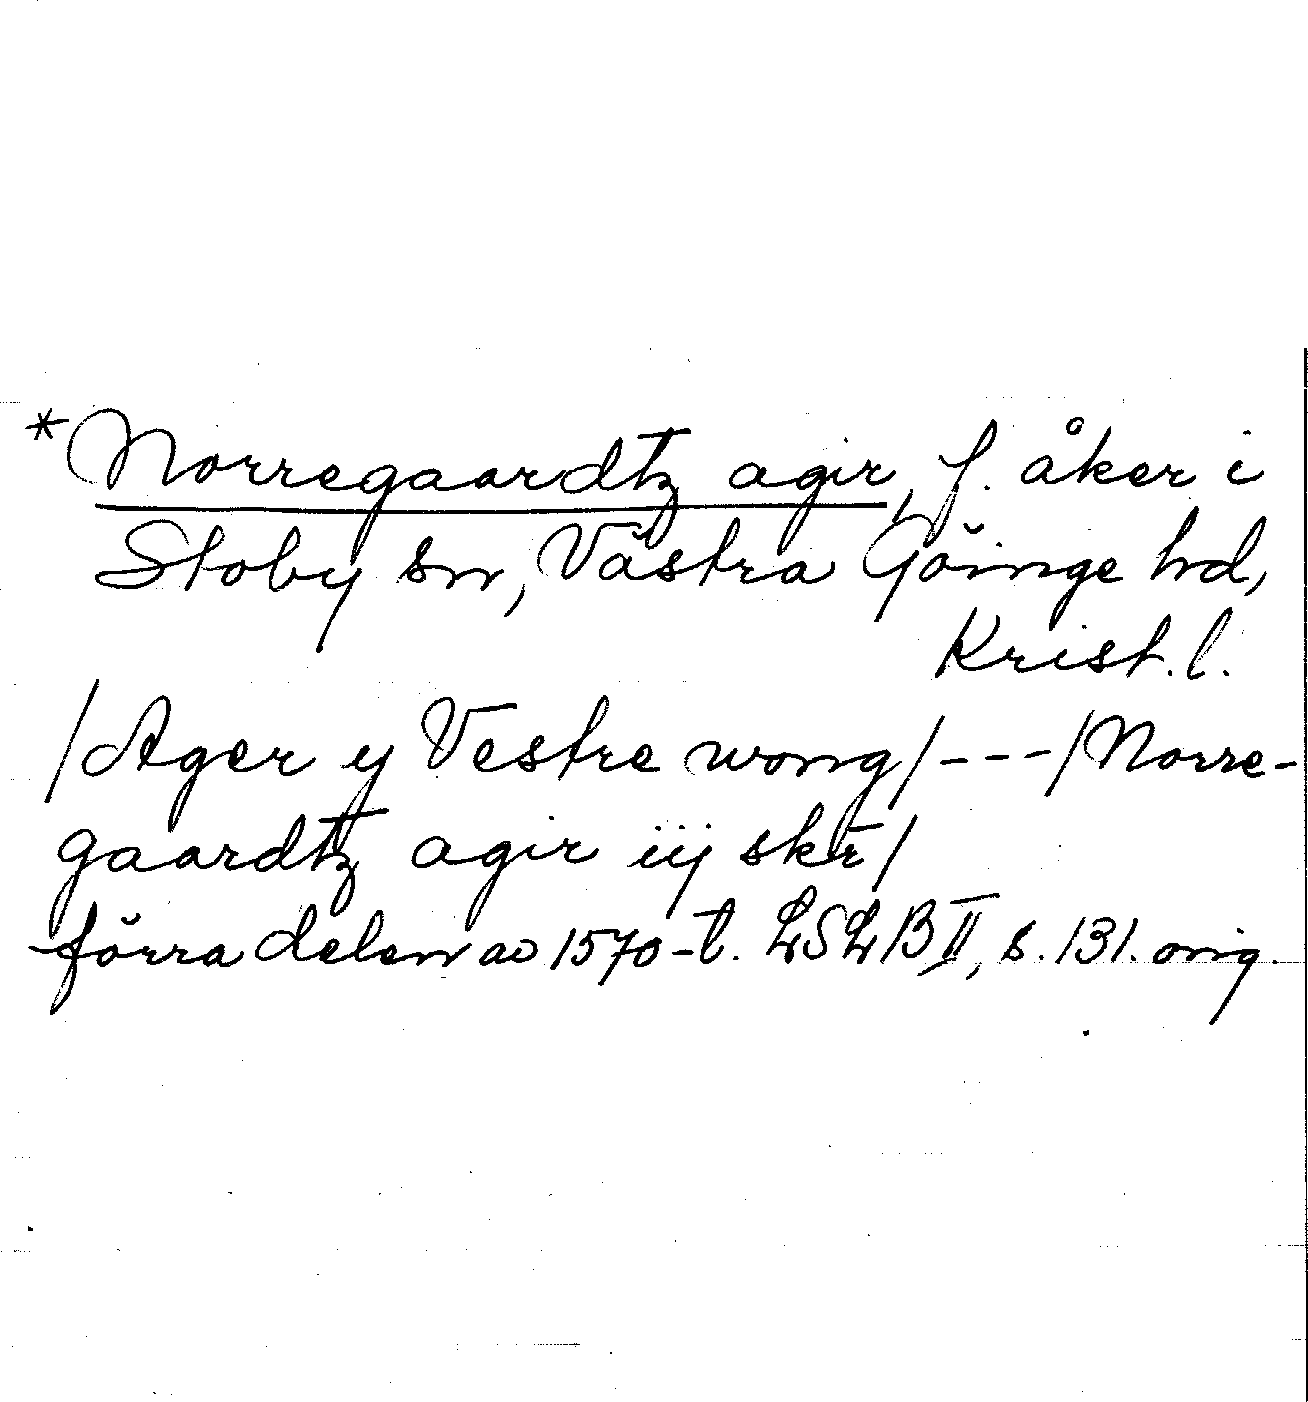 *Norregaardtz agir, f. åker i
Stoby sn, Västra Göinge hd,
Krist. l.
/Ager y Vestre wong/---/Norre-
gaardtz agir iij skr̄/
förra delen av 1570-t. LSLB II, s. 131. orig.